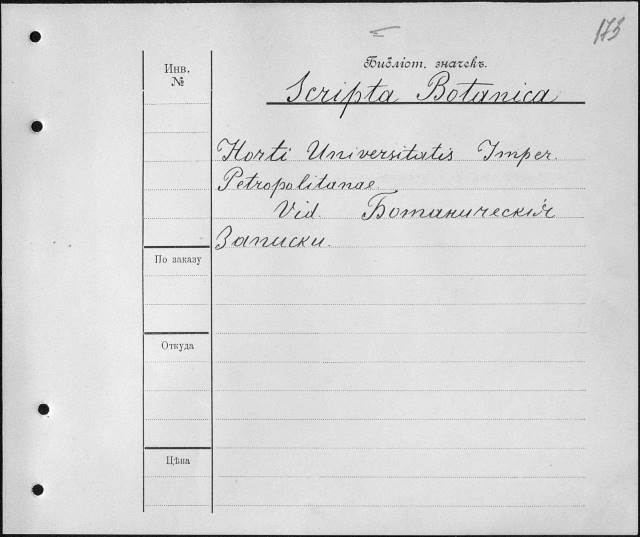 173
Библіот. значекъ.
Scripta Botanica
Инв.
№
Horti Universitatis Imper.
Petropolitanae.
Vid. Ботаническія
Записки.
По заказу
Откуда
Цѣна